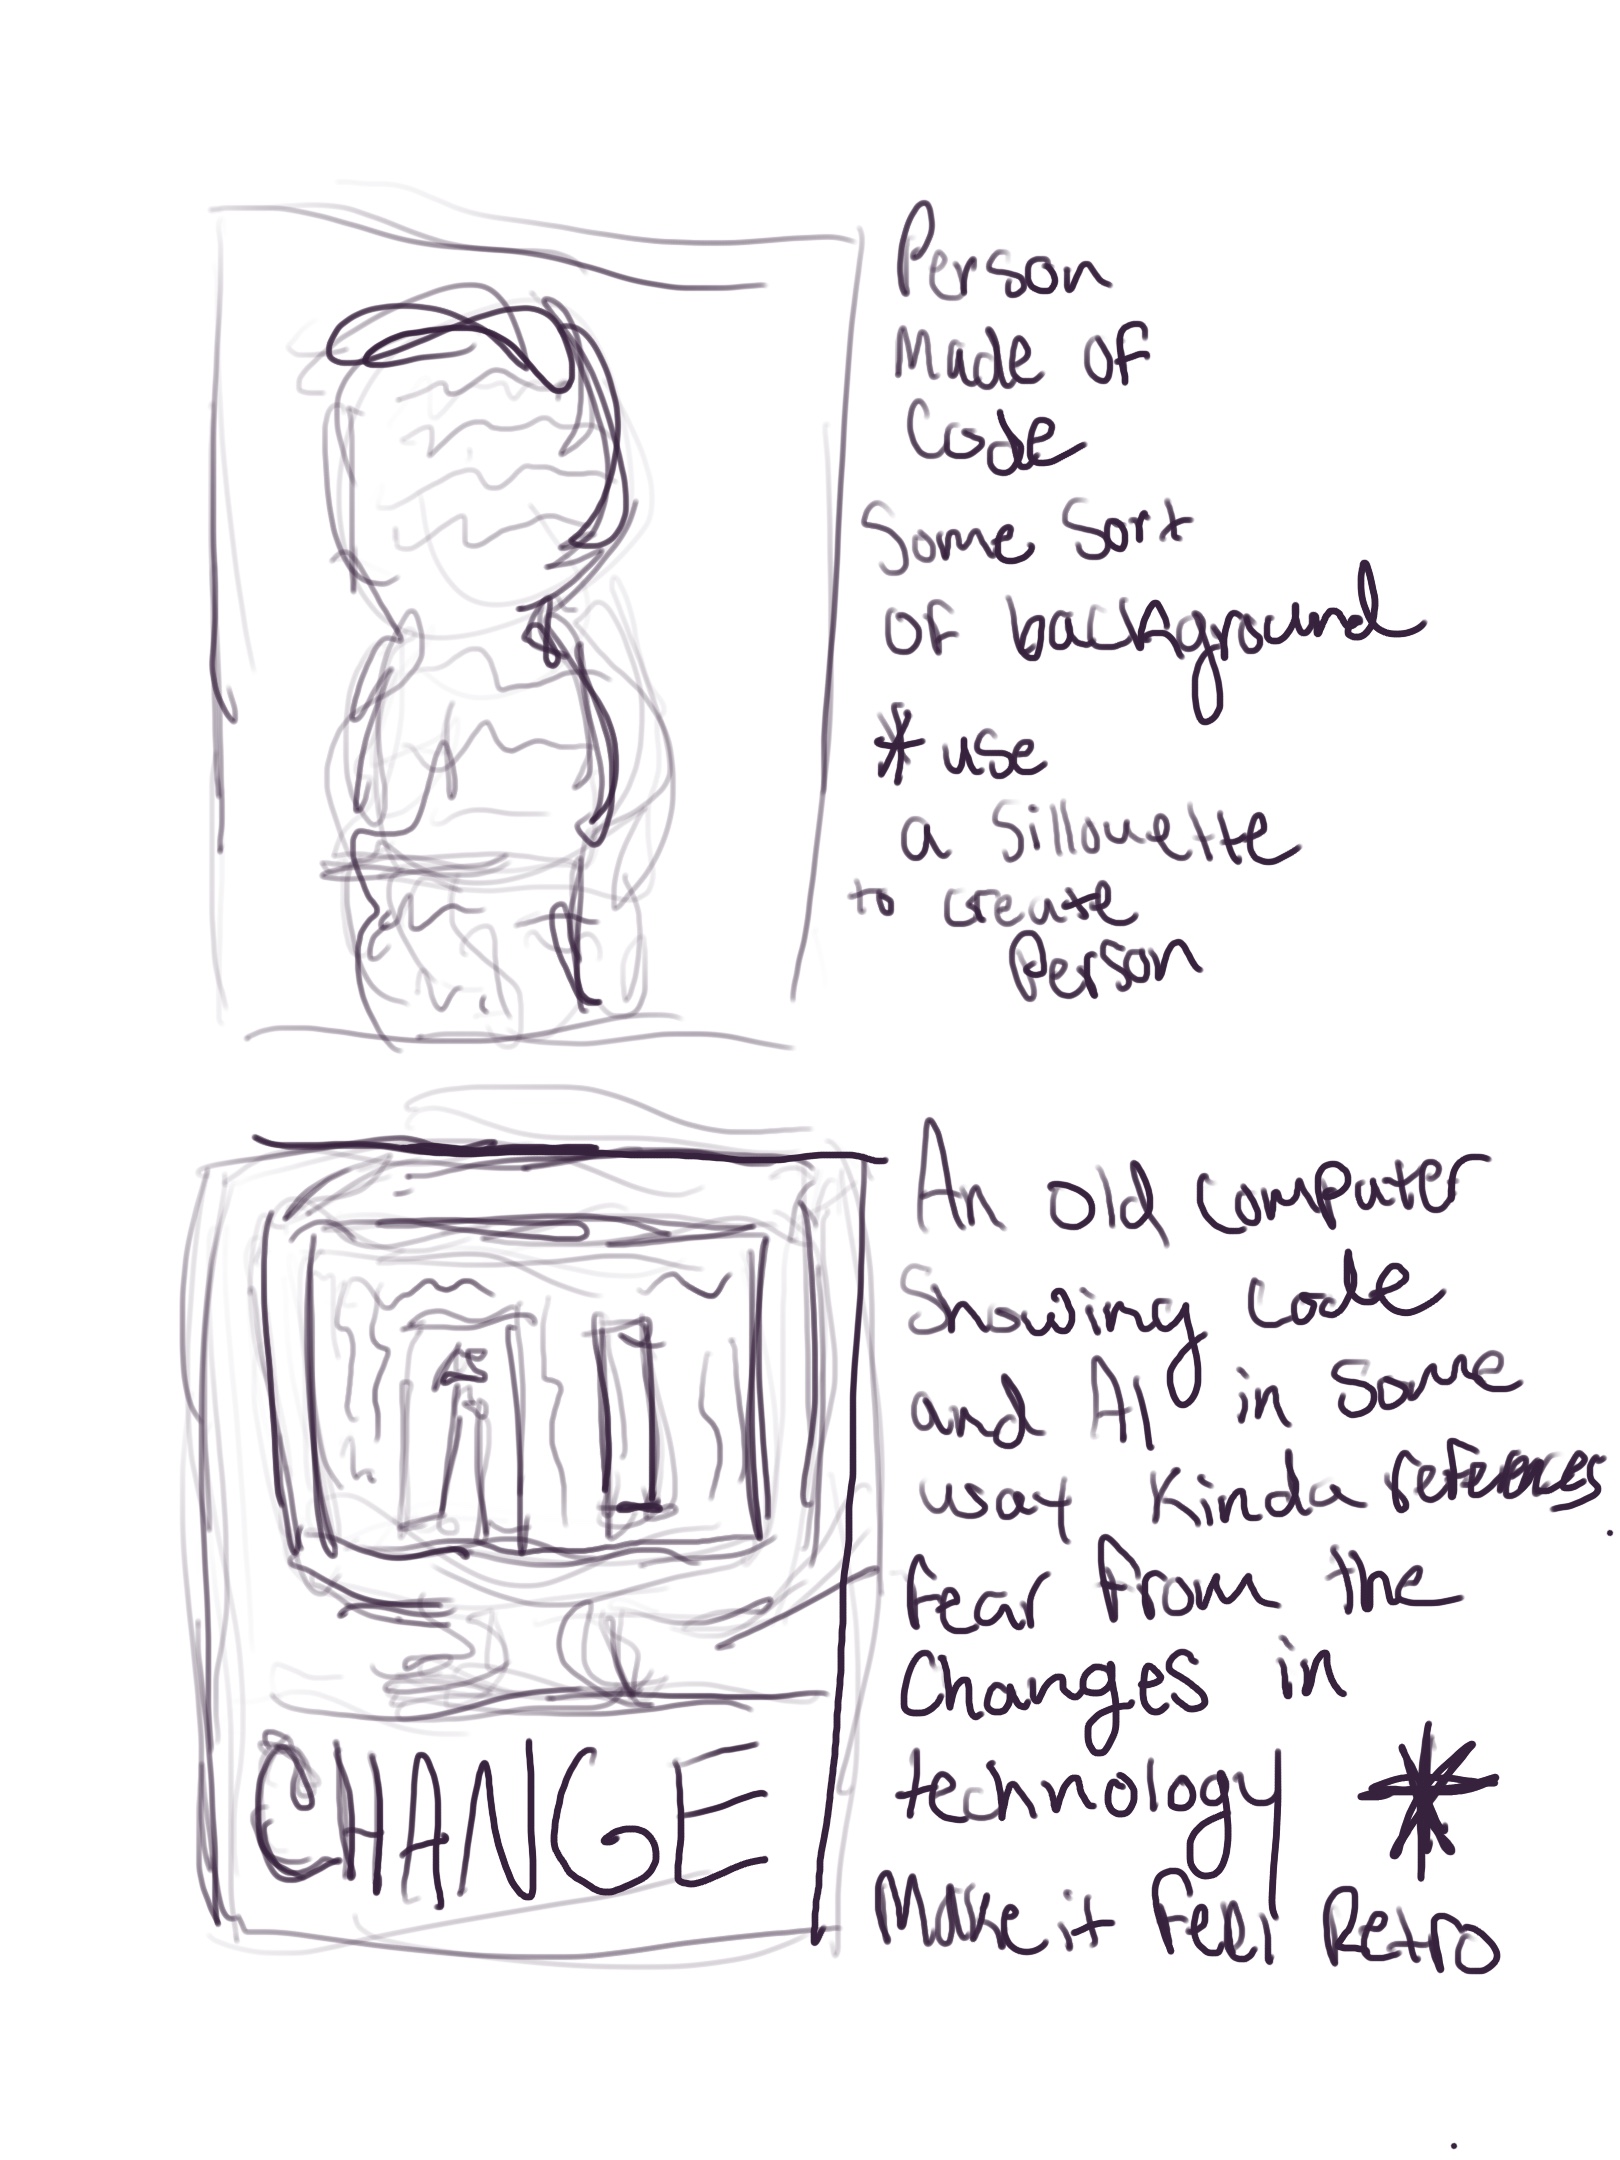 Person
Made of
Code
Some sort
of background
* use
a sillouette
to create
Person
AI
CHANGE
An old computer
Showing code
and AI in some
usay kinda references
fear from the
changes in
technology
Make it feel Retro